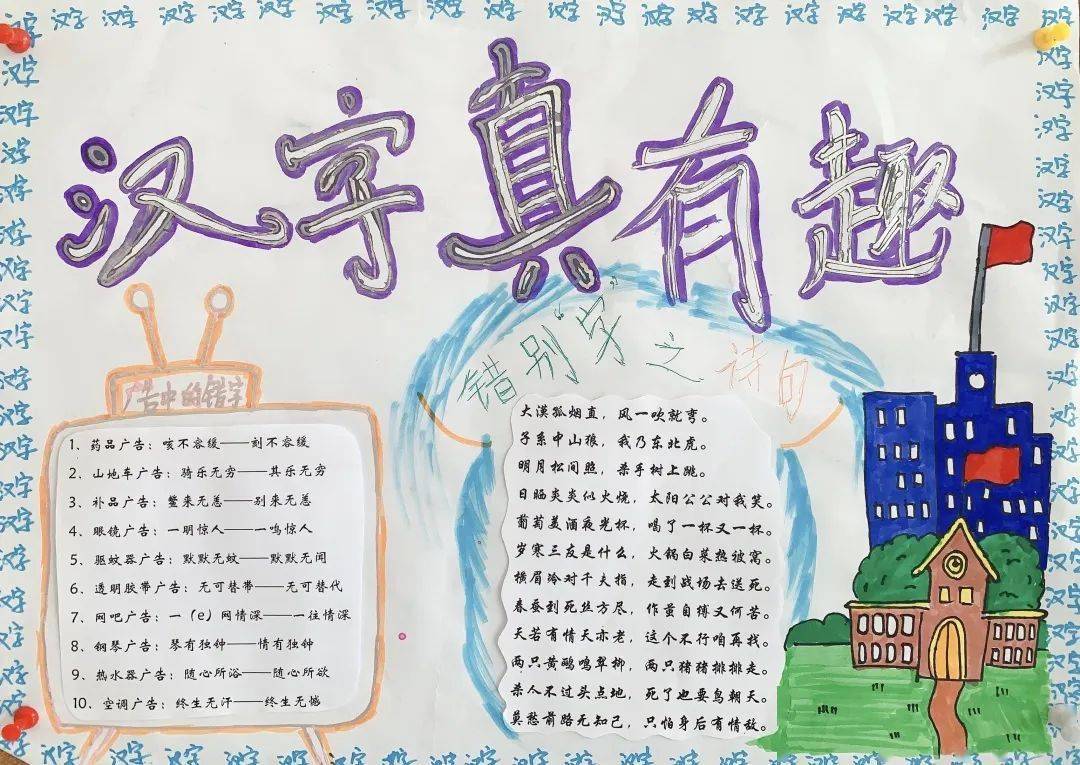 汉字真有趣
广告中的错字
1、药品广告：咳不容缓——刻不容缓
2、山地车广告：骑乐无穷——其乐无穷
3、补品广告：鳖来无恙——别来无恙
4、眼镜广告：一明惊人——一鸣惊人
5、驱蚊器广告：默默无蚊——默默无闻
6、透明胶带广告：无可替带——无可替代
7、网吧广告：一（e）网情深——一往情深
8、钢琴广告：琴有独钟——情有独钟
9、热水器广告：随心所浴——随心所欲
10、空调广告：终生无汗——终生无憾
错别"字"之诗句
大漠孤烟直，风一吹就弯。
子系中山狼，我乃东北虎。
明月松间照，杀手树上跳。
日晒炎炎似火烧，太阳公公对我笑。
葡萄美酒夜光杯，喝了一杯又一杯。
岁寒三友是什么，火锅白菜热被窝。
横眉冷对千夫指，走到战场去送死。
春蚕到死丝方尽，作茧自缚又何苦。
天若有情天亦老，这个不行咱再找。
两只黄鹂鸣翠柳，两只猪猪排排走。
杀人不过头点地，死了也要鸟朝天。
莫愁前路无知己，只怕身后有情敌。